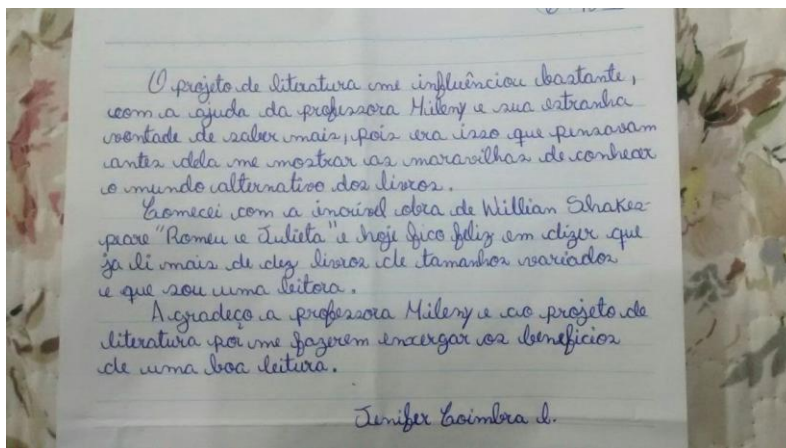 O projeto de literatura me influênciou bastante,
com a ajuda da professora Mileny e sua estranha
vontade de saber mais, pois era isso que pensavam
antes dela me mostrar as maravilhas de conhecer
o mundo alternativo dos livros.
Comecei com a incrível obra de Willian Shakes-
peare "Romeu e Julieta" e hoje fico feliz em dizer que
ja li mais de dez livros de tamanhos variados
e que sou uma leitora.
Agradeço a professora Mileny e ao projeto de
literatura por me fazerem enxergar os beneficios
de uma boa leitura.
Jenifer Coimbra